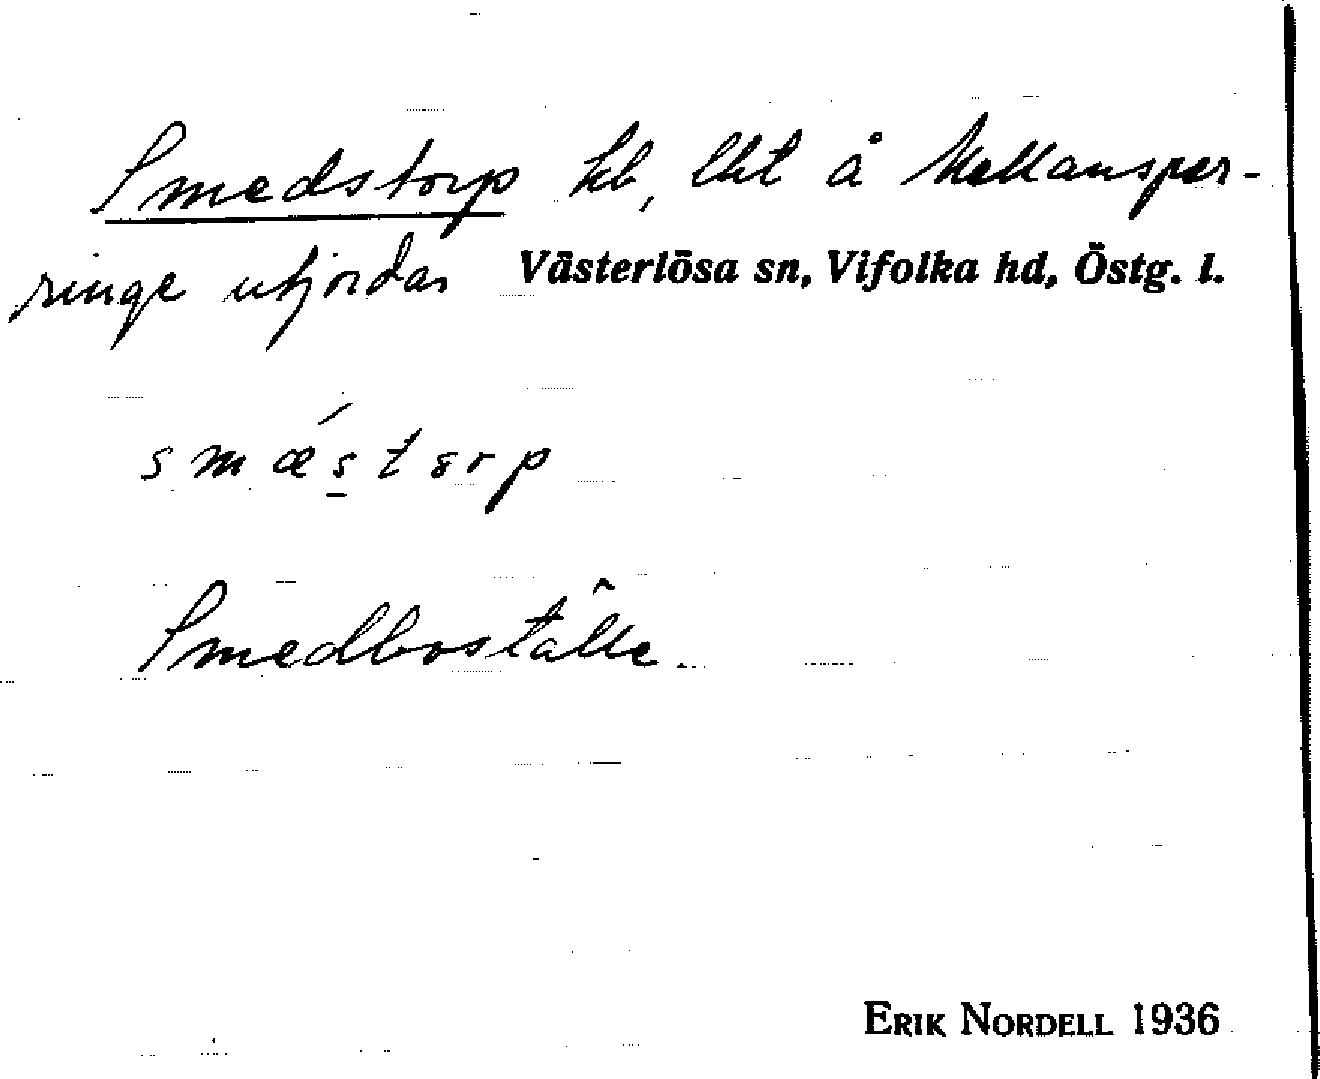 Smedstorp hb, lht å Mellanspær-
ringe utjordar Västerlösa sn, Vifolka hd, Östg. l.
smǽs̠tørp
Smedboställe.
ERIK NORDELL 1936